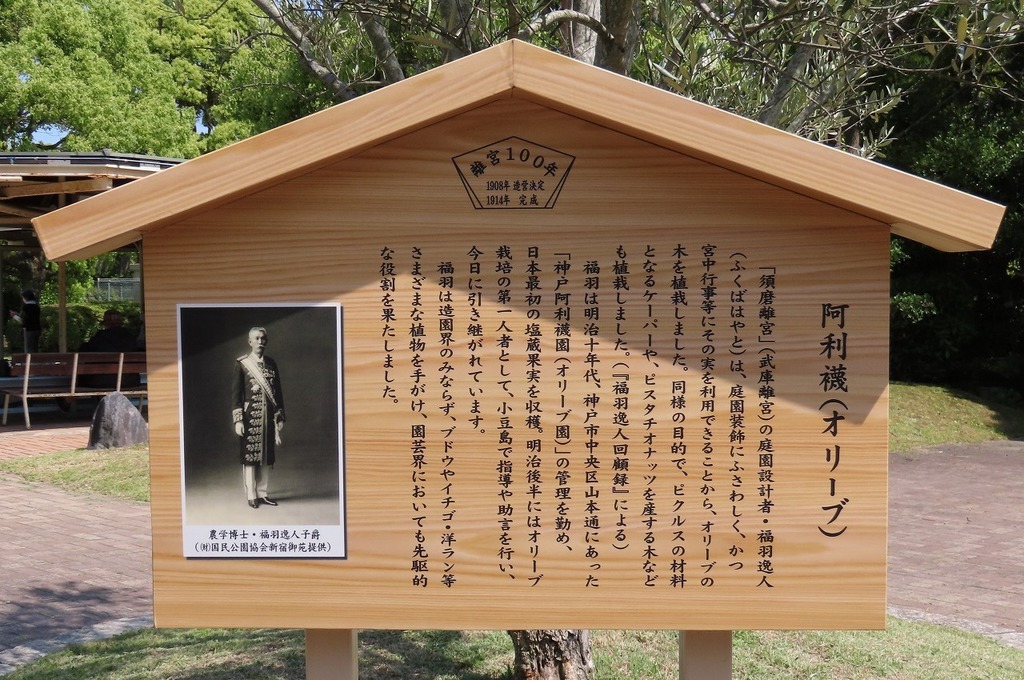 離宮100年
1908年 造営決定
1914年 完成
阿利襪(オリーブ)
「須磨離宮」(武庫離宮)の庭園設計者・福羽逸人
(ふくばはやと)は、庭園装飾にふさわしく、かつ
宮中行事等にその実を利用できることから、オリーブの
木を植栽しました。同様の目的で、ピクルスの材料
となるケーパーや、ピスタチオナッツを産する木など
も植栽しました。(『福羽逸人回顧録』による)
福羽は明治十年代、神戸市中央区山本通にあった
「神戸阿利襪園(オリーブ園)」の管理を勤め、
日本最初の塩蔵果実を収穫。明治後半にはオリーブ
栽培の第一人者として、小豆島で指導や助言を行い、
今日に引き継がれています。
福羽は造園界のみならず、ブドウやイチゴ・洋ラン等
さまざまな植物を手がけ、園芸界においても先駆的
な役割を果たしました。
農学博士・福羽逸人子爵
(㈶国民公園協会新宿御苑提供)